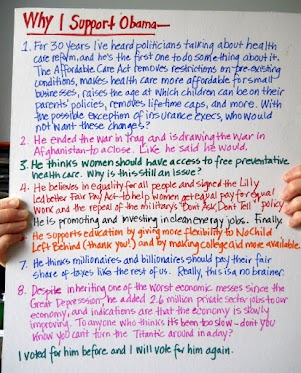 Why I Support Obama—
1. For 30 years I've heard politicians talking about health
care reform, and he's the first one to do something about it.
The Affordable Care Act removes restrictions on pre-existing
conditions, makes health care more affordable for small
businesses, raises the age at which children can be on their
parents' policies, removes lifetime caps, and more. With
the possible exception of insurance execs, who would
not want these changes?
2. He ended the war in Iraq and is drawing the war in
Afghanistan to a close. Like he said he would.
3. He thinks women should have access to free preventative
health care. Why is this still an issue?
4. He believes in equality for all people and signed the Lilly
Ledbetter Fair Pay Act—to help women get equal pay for equal
work and the repeal of the military's "Don't Ask, Don't Tell" policy.
He is promoting and investing in clean energy jobs. Finally.
He supports education by giving more flexibility to No Child
Left Behind (thank you!) and by making college aid more available.
7. He thinks millionaires and billionaires should pay their fair
share of taxes like the rest of us. Really, this is a no brainer.
8. Despite inheriting one of the worst economic messes since the
Great Depression, he added 2.6 million private sector jobs to our
economy, and indications are that the economy is slowly
improving. To anyone who thinks it's been too slow—don't you
know you can't turn the Titanic around in a day?
I voted for him before and I will vote for him again.